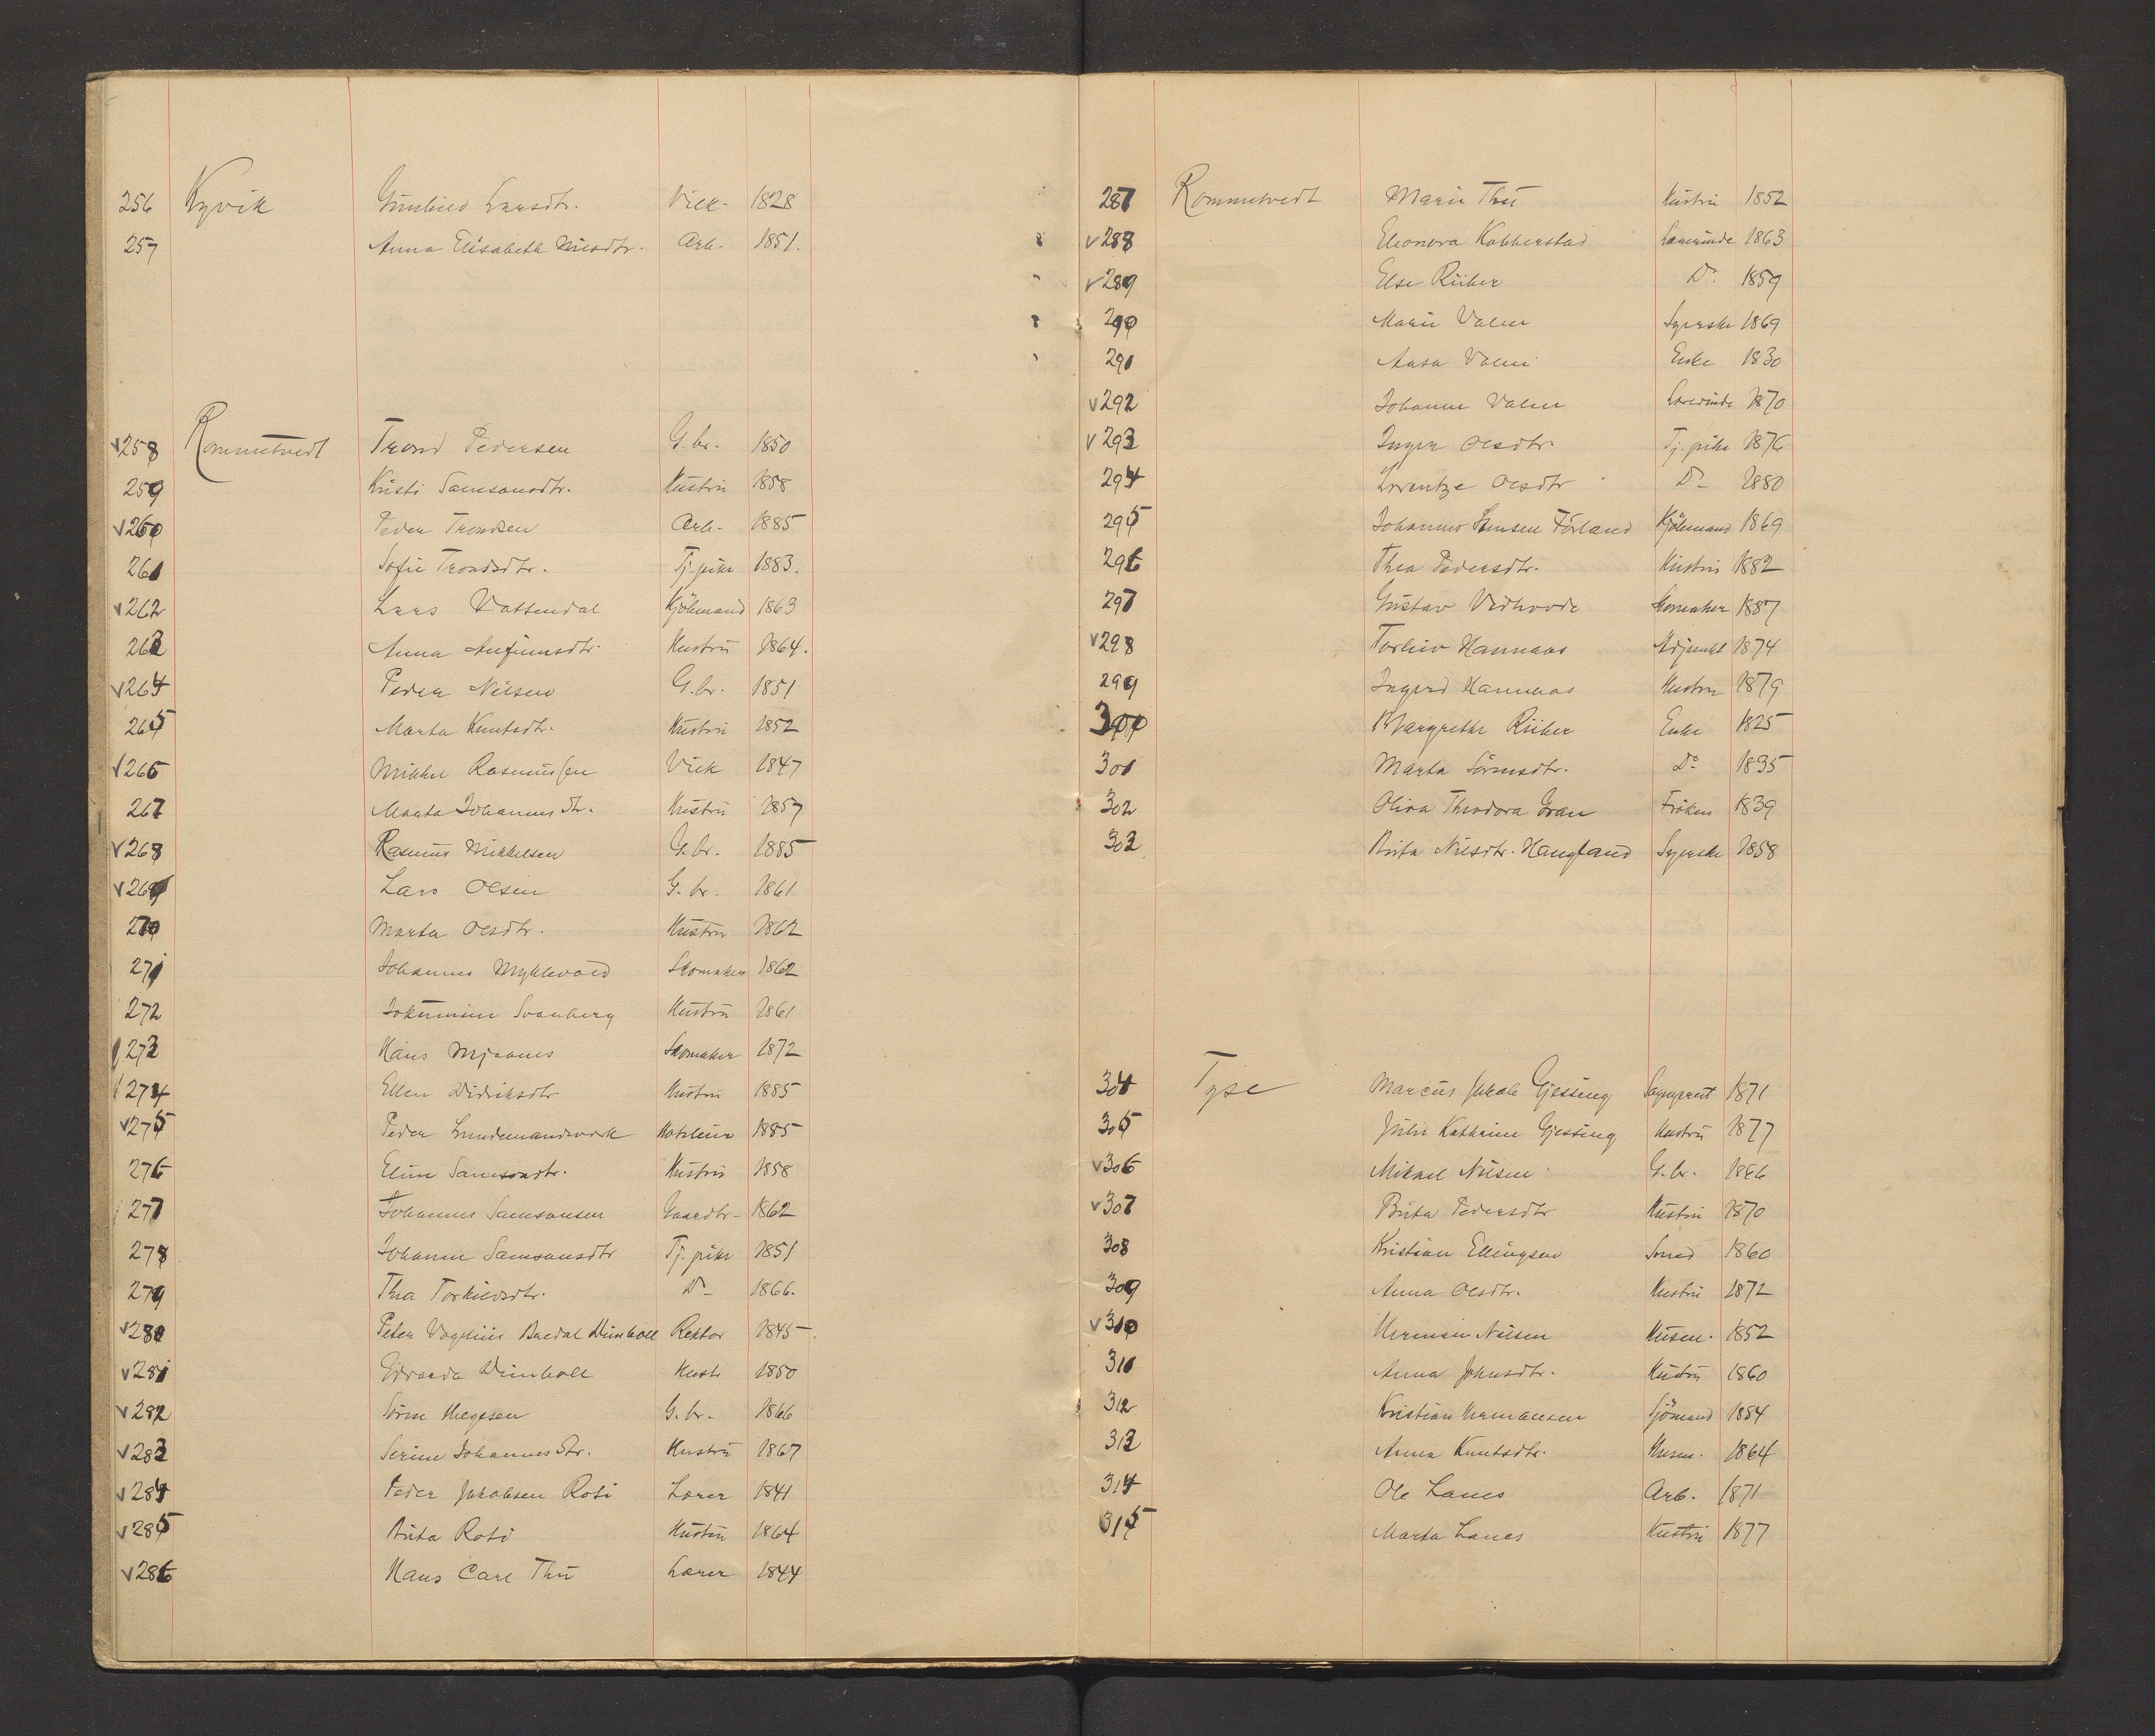 256 Kyvik Gunhild Larsdtr. Vick- 1828
257 Anna Elisabeth Nilsdtr. Arb. 1851.
v 258 Rommetvedt Trond Pedersen G.br. 1850
259 Kristi Samsonsdtr. Hustru 1858
v 260 Peder Trondsen Arb. 1885
261 Sofie Trondsdtr. Tj.pike 1883.
v 262 Lars Vattendal Kjöbmand 1863
263 Anna Anfinnsdtr. Hustru 1864.
v 264 Peder Nilsen G.br. 1851
265 Marta Knutsdtr. Hustru 1852
v 266 Mikkel Rasmussen Vick 1847
267 Marta Johannesdtr. Hustru 1857
v 268 Rasmus Mikkelsen G.br. 1885
v 269 Lars Olsen G.br. 1861
270 Marta Olsdtr. Hustru 1862
271 Johannes Myklevold Skomaker 1862
272 Svanberg Hustru 1861
273 Hans Mjaanes Skomaker 1872
274 Ellen Didriksdtr Hustru 1885
v 275 Peder 1885
276 Eline Samsonsdtr. Hustru 1858
277 Johannes Samsonsen Gaardbr. 1862
278 Johanne Samsonsdtr Tj.pike 1851
279 Thea Torkildsdtr. Do 1866.
v 280 Peter Vogelius Bredal Dünboll Rektor 1845
v 281 Edvarda Dünboll Hustr 1850
v 282 Sören Helgesen G.br. 1866
v 283 Serine Johannesdtr. Hustru 1867
v 284 Peder Jakobsen Roti Lærer 1841
v 285 Brita Roti Hustru 1864
v 286 Hans Carl Thü Lærer 1844
287 Rommetvedt Marie Thü Hustru 1852
v 288 Eleonora Kobberstad Lærerinde 1863
v 289 Else Rüber Do 1859
290 Marie Valen Syerske 1869
291 Aasa Valen Enke 1830
v 292 Johanne Valen Lærerinde 1870
v 293 Inger Olsdtr. Tj.pike 1876
294 Lorentze Olsdtr Do 1880
295 Johannes Hansen Förland Kjöbmand 1869
296 Thea Pedersdtr. Hustru 1882
297 Gustav Vedhovde Skomaker 1887
v 298 Torleiv Hannaas Adjunkt 1874
299 Ingerd Hannaas Hustru 1879
300 Margrethe Rüber Enke 1825
301 Marta Sörensdtr. Do 1835
302 Oliva Theodora Gran Fröken 1839
303 Brita Nilsdtr. Haugland Syerske 1858
304 Tyse Marcus Jakob Gjessing 1871
305 Julie Kathrine Gjessing Hustru 1877
v 306 Mikael Nilsen G.br. 1866
v 307 Brita Pedersdtr Hustru 1870
308 Kristian Ellingsen Smed 1860
309 Anna Olsdtr. Hustru 1872
v 310 Herman Nilsen Husm. 1852
311 Anna Johnsdtr. Hustru 1860
312 Kristian Hermansen Sjömand 1884
313 Anna Knutsdtr. Husm. 1864
314 Ole Lanes Arb. 1871
315 Marta Lanes Hustru 1877